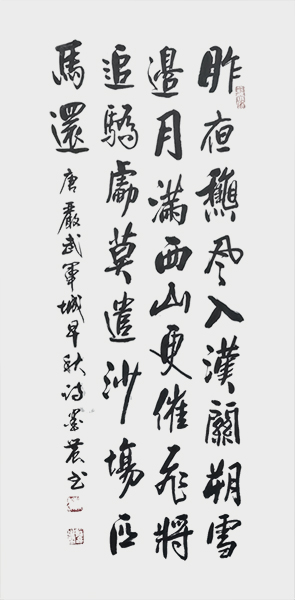 昨夜龝風入漢關朔雪
邊月滿西山更催飛將
追驕虜莫遣沙場匹
馬還 唐嚴武軍城早秋詩 墨農書